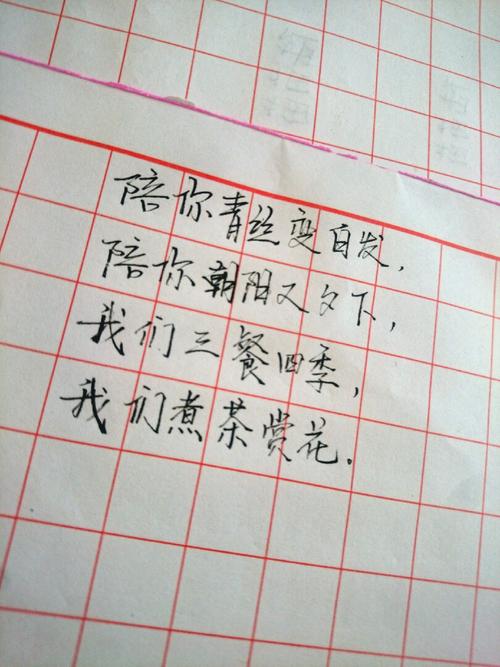 陪你青丝变白发,
陪你朝阳又夕下,
我们三餐四季,
我们煮茶赏花.